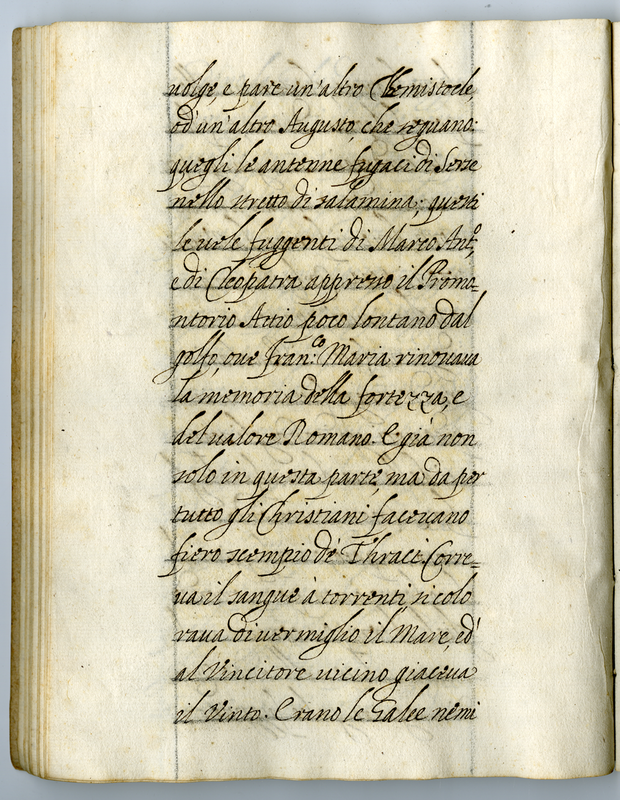 uolge, e pare un'altro Themistocle,
od'un'altro Augusto, che seguano:
quegli le antenne fugaci di Serse
nello stretto di salamina; questi
le uele fuggenti di Marco Ant.º,
e di Cleopatra appresso il Promo=
ntorio Attio poco lontano dal
golfo, oue Fran:co Maria rinouaua
la memoria della fortezza, e
del ualore Romano. E già non
solo in questa parte, ma da per
tutto gli Christiani faceuano
fiero scempio de' Thraci. Corre=
ua il sangue à torrenti, si colo
raua di uermiglio il Mare, ed'
al Vincitore uicino giaceua
il Vinto. Erano le Galee nemi